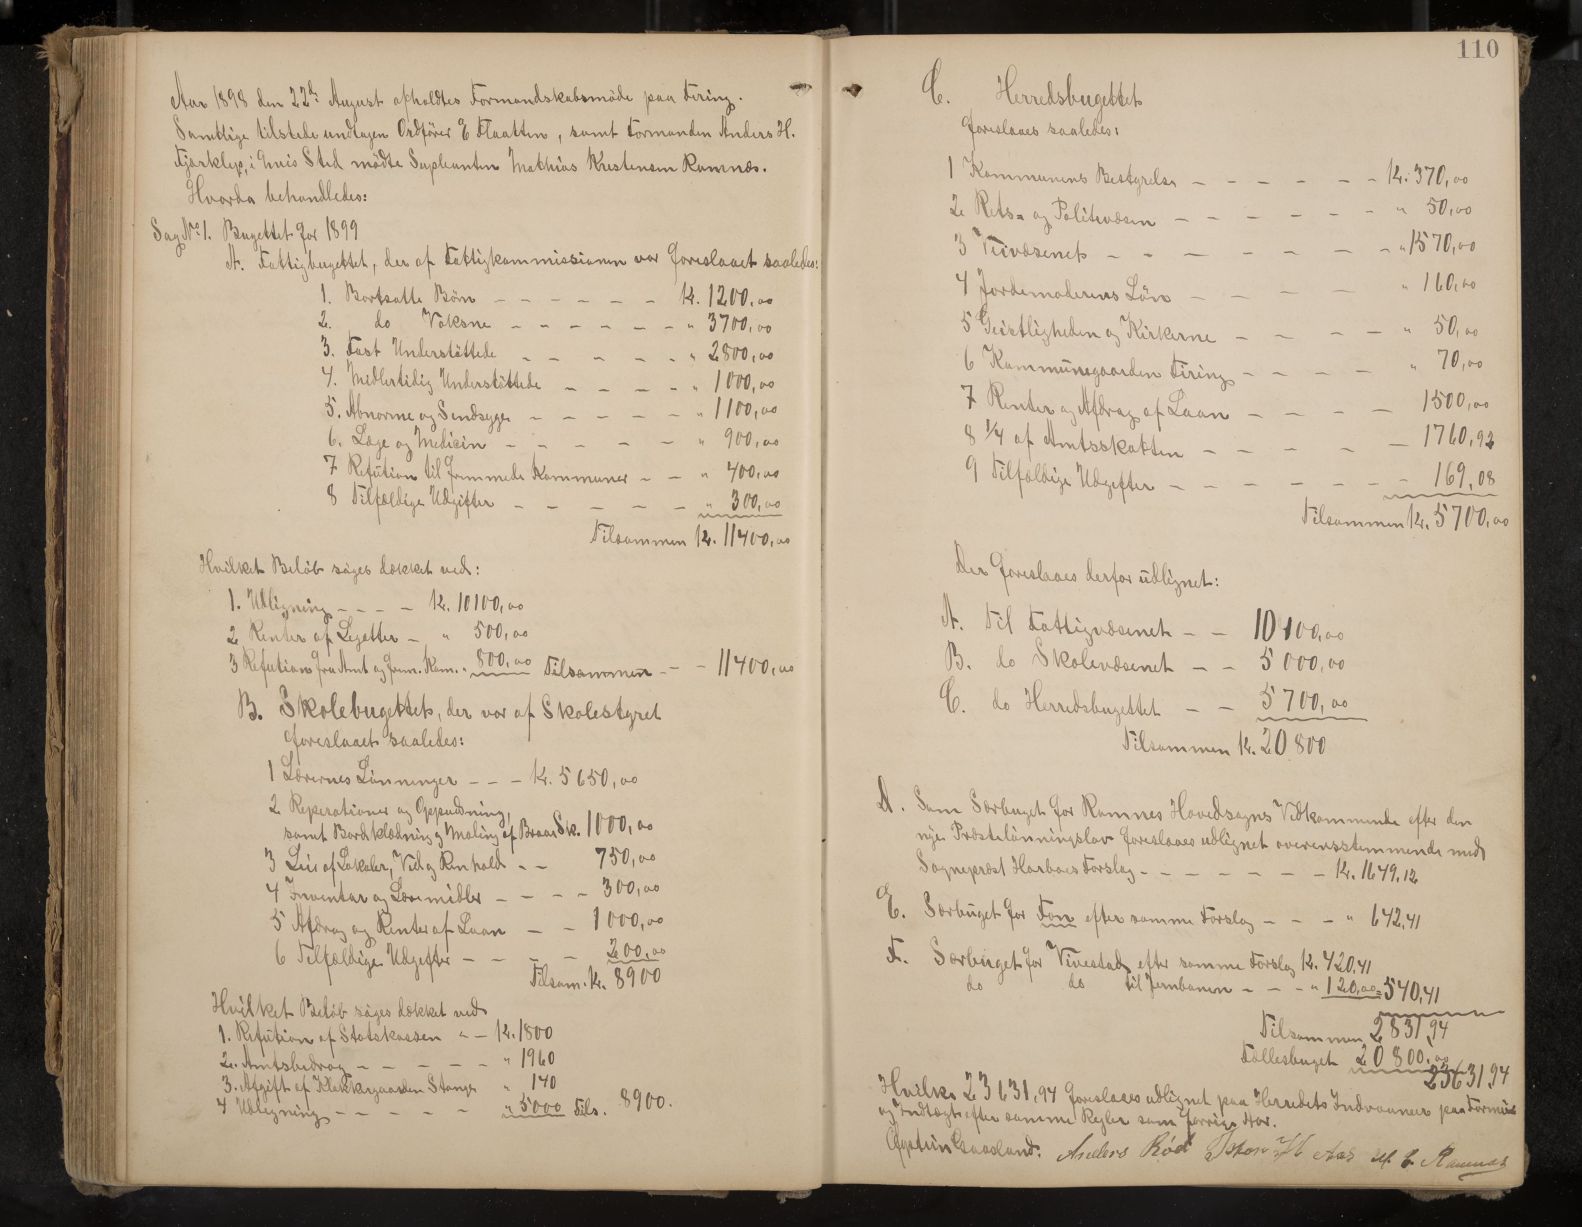 Aar 1898 den 22de August afholdtes Formandskabsmöde paa Firing.
Samtlige tilstede undtagen Ordförer E Flaatten, samt Formanden Anders H.
Fjærklep, i hvis Sted mödte Supleanten Mathias Kristensen Ramnæs.
Hvorda behandledes:
Sag No 1. Bugettet for 1899
A. Fattigbugettet, der af Fattigkommissionen var foreslaaet saaledes:
1. Bortsatte Börn — — — — — — Kr. 1200,00
2. do Voksne — — — — — — " 3700,00
3. Fast Understöttede — — — — — " 2800,00
4. Midlertidig Understöttede — — — — " 1000,00
5. Abnorme og Sindsyge — — — — — " 1100,00
6. Læge og Medicin — — — — — " 900,00
7 Refution til fremmede Kommuner — — " 400,00
8 Tilfældige Udgifter — — — — — " 300,00
Tilsammen Kr. 11400,00
Hvilket Belöb söges dækket ved:
1. Udligning — — — — Kr. 10100,00
2 Renter af Legatter — " 500,00
3 Refution fra Amt og frem. Kom. " 800,00 Tilsammen — — 11400,00
B. Skolebugettet, der var af Skolestyret
foreslaaet saaledes:
1 Lærernes Lönninger — — — Kr. 5650,00
2 Reperationer og Oppudsning,
samt Bordklædning og Maling af Braar Sk. 1000,00
3 Leie af Lokaler, Ved og Renhold — — 750,00
4 Inventar og Læremidler — — — — 300,00
5 Afdrag og Renter af Laan — — 1000,00
6 Tilfældige Udgifter — — — — 200,00
Tilsam. Kr. 8900
Hvilket Belöb söges dækket ved
1. Refution af Statskassen " — Kr. 1800
2. Amtsbidrag — — — — — " 1960
3. Afgift af Klokkergaarden Stange " 140
4 Udligning — — — — — " 5000 Tils. 8900.
110
C. Herredsbugettet
foreslaaes saaledes:
1 Kommunens Bestyrelse — — — — — — Kr. 370,00
2 Rets- og Politivæsen — — — — — — " 50,00
3 Veivæsenet — — — — — — — " 1570,00
4 Jordemoderens Lön — — — — " 160,00
5 Geistligheden og Kirkerne — — — — " 50,00
6 Kommunegaarden Firing — — — — " 70,00
7 Renter og Afdrag af Laan — — — — 1500,00
8 1/4 af Amtsskatten — — — — — 1760,92
9 Tilfældige Udgifter — — — — — — — 169,08
Tilsammen Kr. 5700,00
Der foreslaaes derfor udlignet:
A. Til Fattigvæsenet — — 10100,00
B. do Skolevæsenet — — 5000,00
C. do Herredsbugettet — — 5700,00
Tilsammen Kr. 20800
D. Som Særbuget for Ramnes Hovedsogns Vidkommende efter den
nye Præstelönningslov foreslaaes udlignet overensstemmende med
Sogneprest Harboes Forslag — — — — — — — Kr. 1649,12
E. Særbuget for Fon efter samme Forslag — — — " 642,41
F. Særbuget for Vivestad efter samme Forslag Kr. 420,41
do do til Jernbanen — — — " 120,00 = 540,41
Tilsammen 2831,94
Fællesbuget 20800,00
23631,94
Hvilke 23631,94 foreslaaes udlignet paa Herredets Indvaanere paa Formue
og Indtægt efter samme Regler som forrige Aar.
Anders Röd M. C. Ramnæs